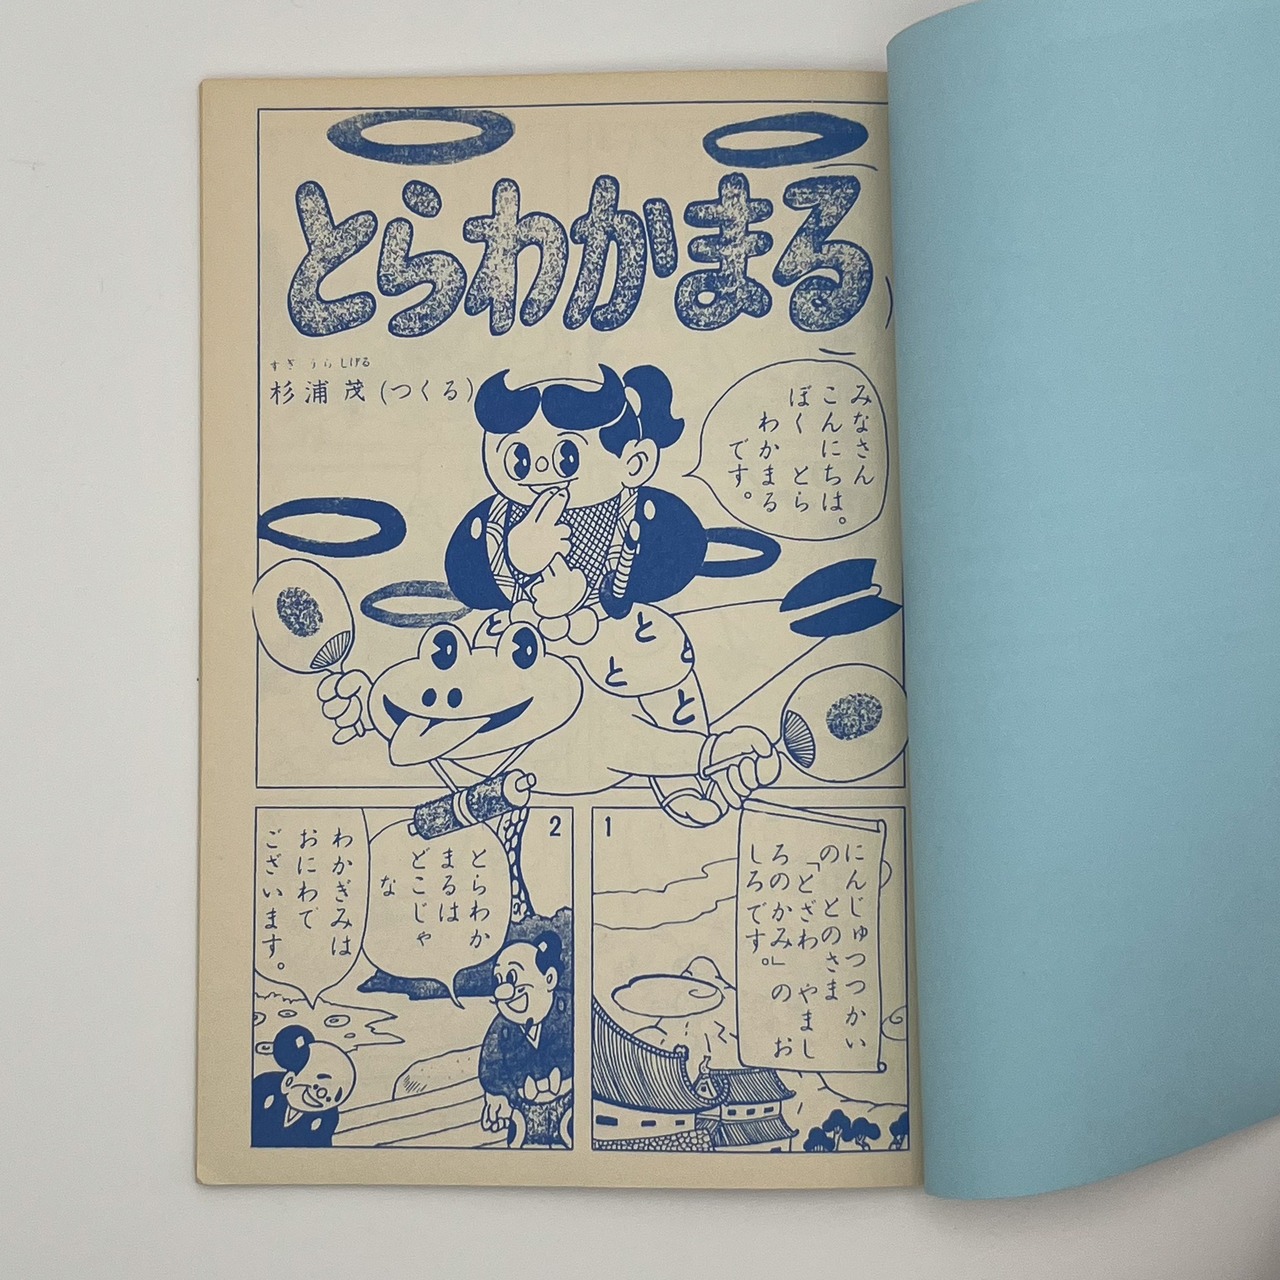 とらわかまる
すぎうらしげる
杉浦茂(つくる)
みなさん
こんにちは。
ぼく とら
わかまる
です。
と
と
と
と
と
1
にんじゅつつかい
の とのさま
「とざわ やまし
ろのかみ」の お
しろです。
2
とらわか
まるは
どこじゃ
な
わかぎみは
おにわで
ございます。